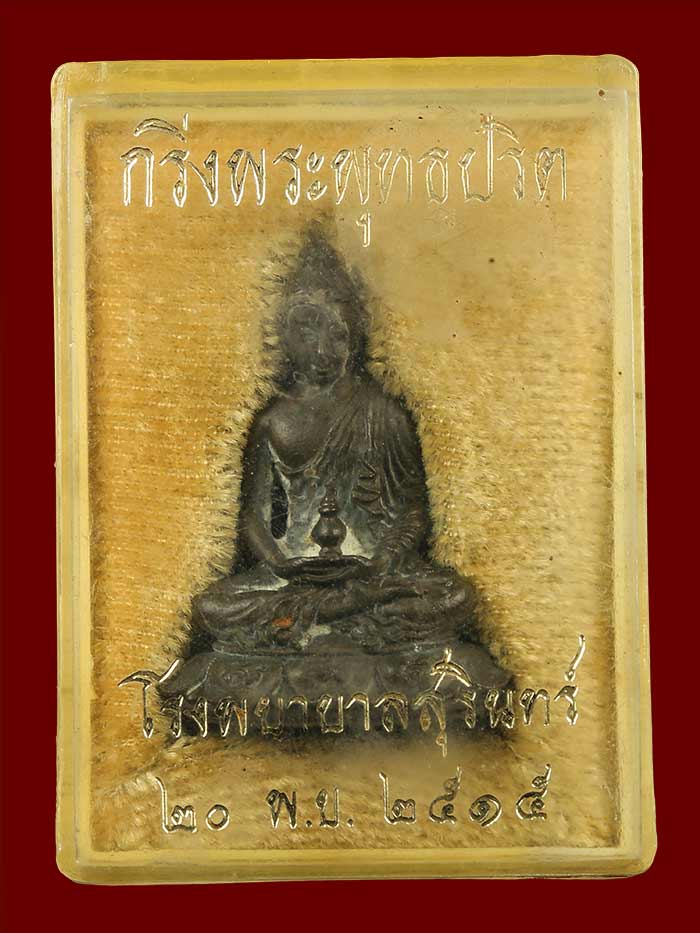 กริ่งพระพุทธปริต
โรงพยาบาลสุรินทร์
๒๐ พ.ย. ๒๕๑๕